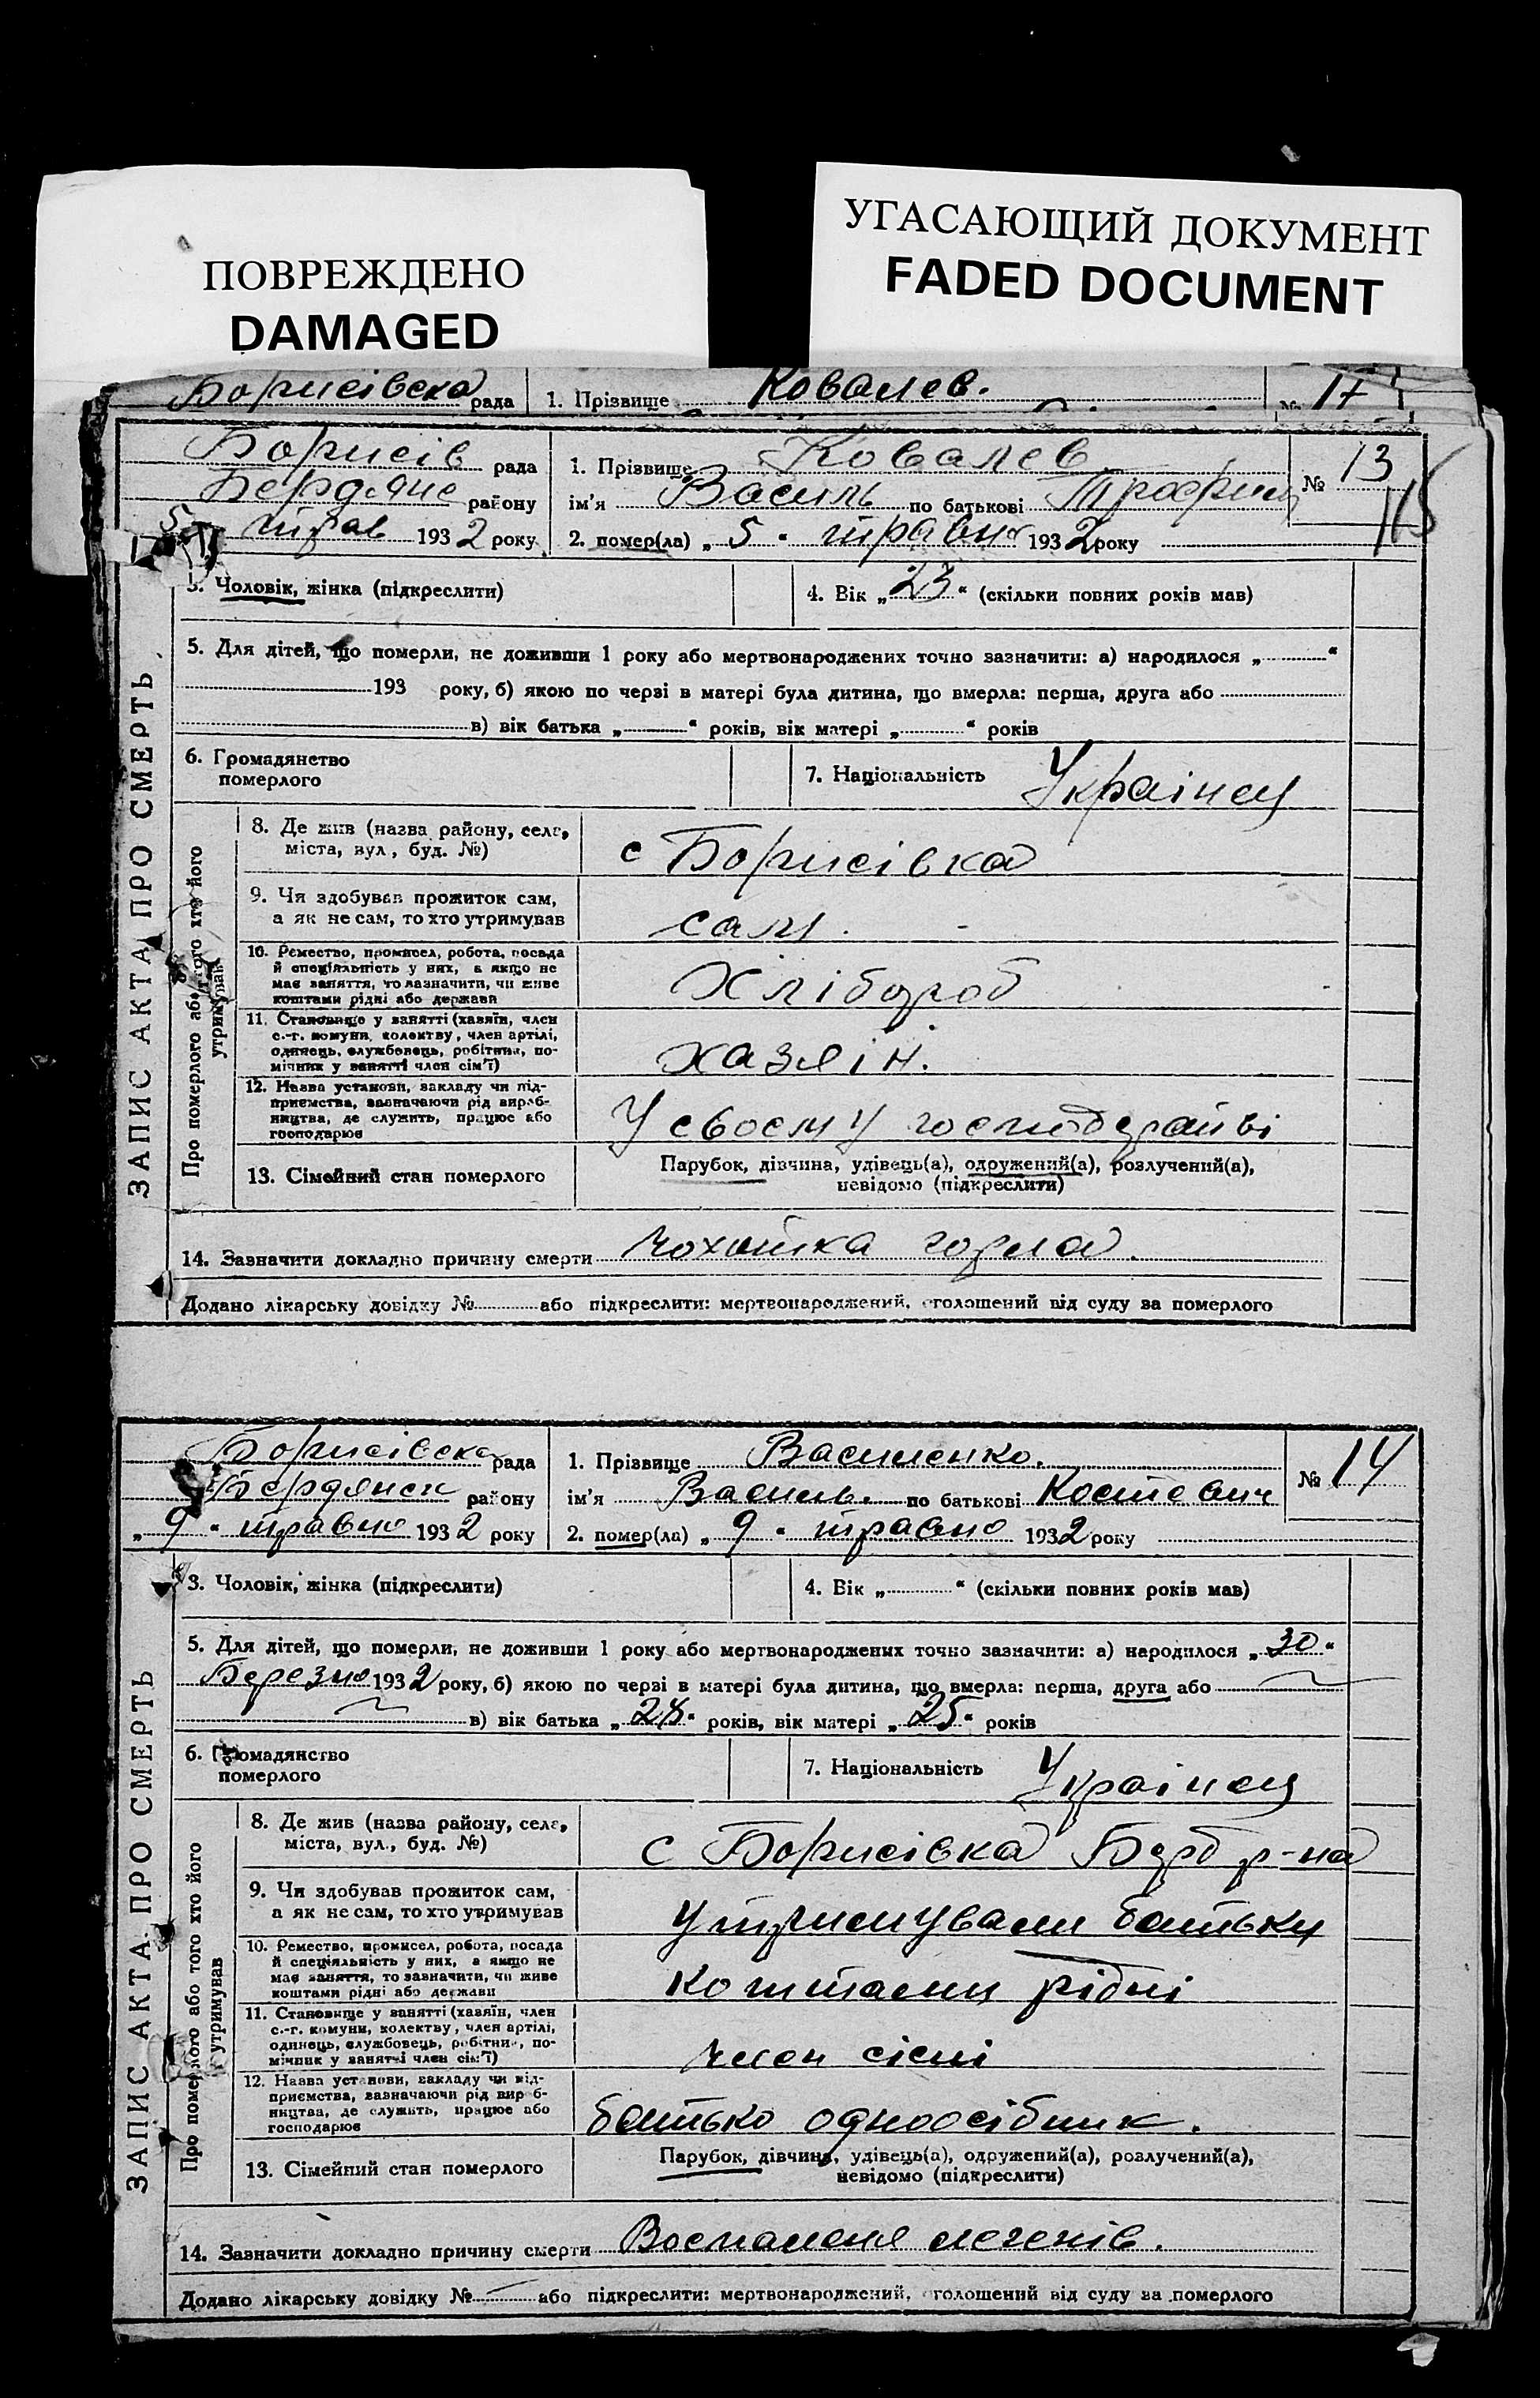 ПОВРЕЖДЕНО
DAMAGED
УГАСАЮЩИЙ ДОКУМЕНТ
FADED DOCUMENT
Борисівска рада 1. Прізвище Ковалев. № 17
Борисів рада 1. Прізвище Ковалев № 13
Бердянс району ім'я Василь по батькові Трофим 115
5 трав 1932 року 2. помер(ла) „ 5 “ травня 1932 року
3. Чоловік, жінка (підкреслити) 4. Вік „ 23 “ (скільки повних років мав)
5. Для дітей, що померли, не доживши 1 року або мертвонароджених точно зазначити: а) народилося „ “
193 року, б) якою по черзі в матері була дитина, що вмерла: перша, друга або
в) вік батька „ “ років, вік матері „ “ років
6. Громадянство
померлого
7. Національність Українец
ЗАПИС АКТА ПРО СМЕРТЬ
Про померлого або того хто його
утримував
8. Де жив (назва району, села,
міста, вул., буд. №)
с Борисівка
9. Чи здобував прожиток сам,
а як не сам, то хто утримував
сам.
10. Ремество, промисел, робота, посада
й спеціяльність у них, а якщо не
має заняття, то зазначити, чи живе
коштами рідні або держави
Хлібороб
11. Становище у занятті (хазяїн, член
с.-г. комуни, колектву, член артілі,
одинець, службовець, робітник, по-
мічник у занятті член сім'ї)
хазяін.
12. Назва установи, закладу чи під-
приємства, зазначаючи рід вироб-
ництва, де служить, працює або
господарює
У своєму господарстві
13. Сімейний стан померлого
Парубок, дівчина, удівець(а), одружений(а), розлучений(а),
невідомо (підкреслити)
14. Зазначити докладно причину смерти чохотка горла.
Додано лікарську довідку № або підкреслити: мертвонароджений, оголошений від суду за померлого
Борисівска рада 1. Прізвище Василенко. № 14
Бердянск району ім'я Василь. по батькові Костевич
„ 9 “ травню 1932 року 2. помер(ла) „ 9 “ травню 1932 року
3. Чоловік, жінка (підкреслити) 4. Вік „ “ (скільки повних років мав)
5. Для дітей, що померли, не доживши 1 року або мертвонароджених точно зазначити: а) народилося „ 30 “
Березню 1932 року, б) якою по черзі в матері була дитина, що вмерла: перша, друга або
в) вік батька „ “ років, вік матері „ 25 “ років
6. Громадянство
померлого
7. Національність Українец
ЗАПИС АКТА ПРО СМЕРТЬ
Про померлого або того хто його
утримував
8. Де жив (назва району, села,
міста, вул., буд. №)
с Борисівка Берд р-на
9. Чи здобував прожиток сам,
а як не сам, то хто утримував
утримували батьки
10. Ремество, промисел, робота, посада
й спеціяльність у них, а якщо не
має заняття, то зазначити, чи живе
коштами рідні або держави
коштами рідні
11. Становище у занятті (хазяїн, член
с.-г. комуни, колектву, член артілі,
одинець, службовець, робітник, по-
мічник у занятті член сім'ї)
член сімі
12. Назва установи, закладу чи під-
приємства, зазначаючи рід вироб-
ництва, де служить, працює або
господарює
батько одноосібник.
13. Сімейний стан померлого
Парубок, дівчина, удівець(а), одружений(а), розлучений(а),
невідомо (підкреслити)
14. Зазначити докладно причину смерти Воспаленя легенів.
Додано лікарську довідку № або підкреслити: мертвонароджений, оголошений від суду за померлого